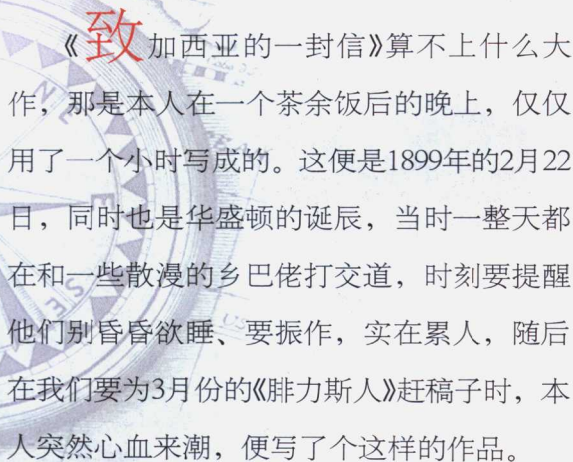 《致加西亚的一封信》算不上什么大
作，那是本人在一个茶余饭后的晚上，仅仅
用了一个小时写成的。这便是1899年的2月22
日，同时也是华盛顿的诞辰，当时一整天都
在和一些散漫的乡巴佬打交道，时刻要提醒
他们别昏昏欲睡、要振作，实在累人，随后
在我们要为3月份的《腓力斯人》赶稿子时，本
人突然心血来潮，便写了个这样的作品。
NE
E
SE